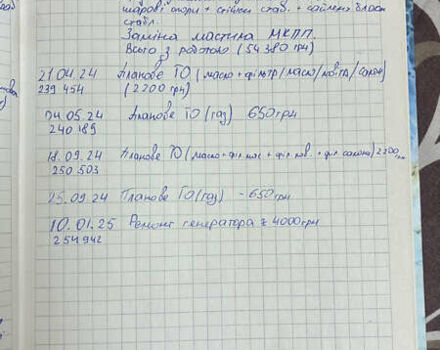 шарові опори + стійки стаб. + сайлент блоки
стабл.
Заміна мастила МКПП.
Всього з роботою (54 380 грн)
21.04.24 Планове ТО (масло + фільтр/масло/повітр/салон)
239 454 (2200 грн)
24.05.24 Планове ТО (газ) 650 грн
240 189
18.09.24 Планове ТО (масло + філ мас + філ пов. + філ салона) 2200 грн
250 503
25.09.24 Планове ТО (газ) - 650 грн
10.01.25 Ремонт генератора 4000 грн
254 942